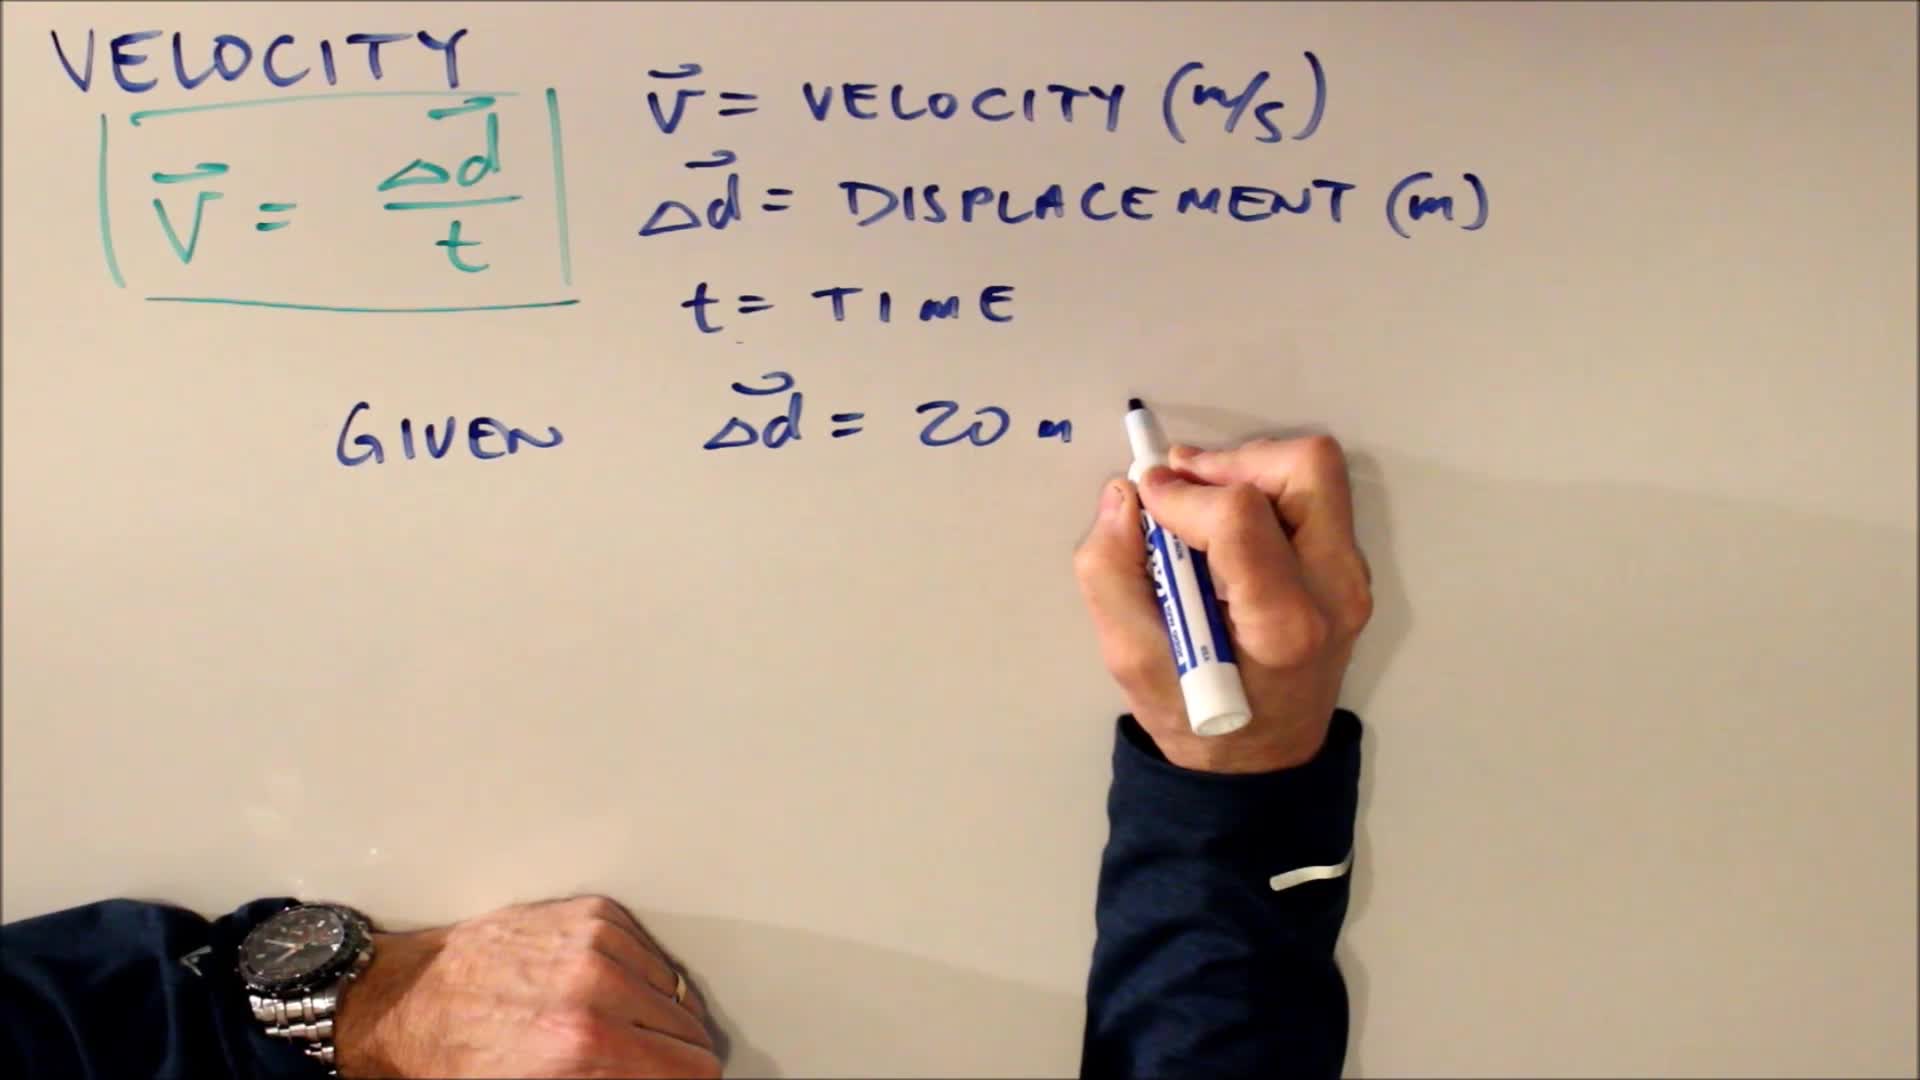 VELOCITY
v⃗ = Δd⃗ / t
v⃗ = VELOCITY (m/s)
Δd⃗ = DISPLACEMENT (m)
t = TIME
GIVEN Δd⃗ = 20 m